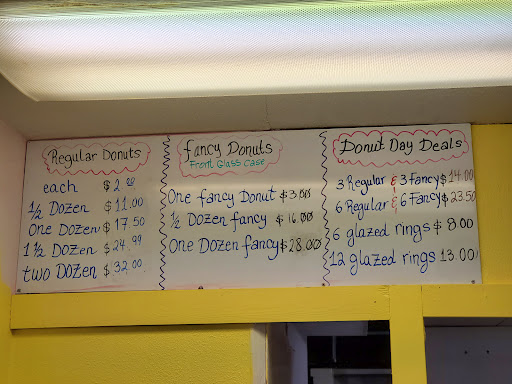 Regular Donuts
each $2.00
1/2 Dozen $11.00
One Dozen $17.50
1 1/2 Dozen $24.99
two Dozen $32.00
fancy Donuts
Front Glass Case
One fancy Donut $3.00
1/2 Dozen fancy $16.00
One Dozen fancy $28.00
Donut Day Deals
3 Regular & 3 Fancy $14.00
6 Regular & 6 Fancy $23.50
6 glazed rings $8.00
12 glazed rings 13.00